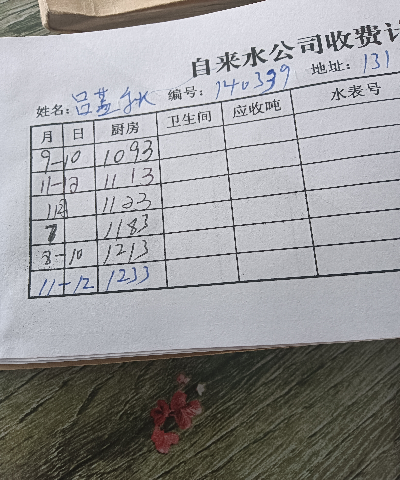 自来水公司收费
姓名: 吕 编号: 140339 地址: 131
月 日 厨房 卫生间 应收吨 水表号
9-10 1093
11-12 1113
1123
1183
8-10 1213
11-12 1233